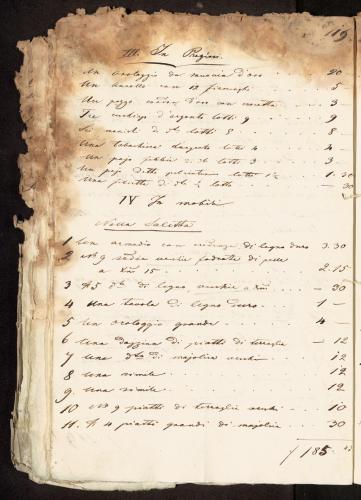 119
III. In Preziosi.
Un orologio da saccoccia d'oro 20
Un anello con 13 5
Un pezzo d'oro con rosetta 3
Tre d'argento lotti 9 9
Sei lotti 8 8 —
Una tabachiera d'argento lotti 4 4 —
Un pajo fibbie lotti 3 3 —
Un pajo dette lotti 1 30
Una lotto — 30
IV In mobili
Nella Saletta
1 Un armadio con di legno duro 3. 30
2 No 9 sedie vecchie fodrate di pelle
a Xni 15 2. 15
3 No 5 dte di legno, vecchie a — 30
4 Una tavola di legno duro 1 —
5 Un orologio grande 4 —
6 Una dozzina di piatti di terraglia — 12
7 Una dta di majolica vecchi 12
8 Una simile 12
9. Una simile 12
10 No 9 piatti di terraglia vecchi — 10
11. No 4 piatti grandi di majolica 30
f 185